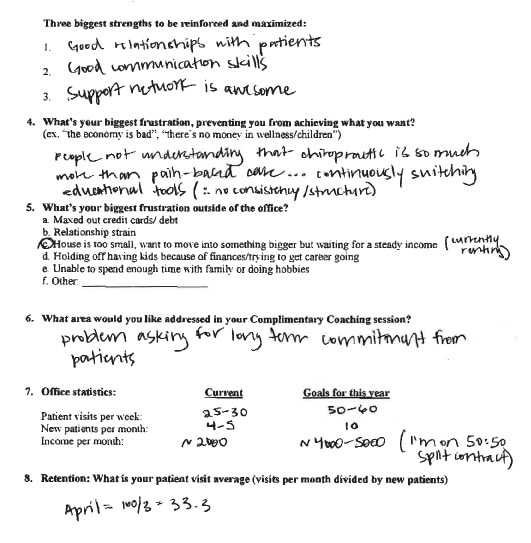 Three biggest strengths to be reinforced and maximized:
1. Good relationships with patients
2. Good communication skills
3. Support network is awesome
4. What's your biggest frustration, preventing you from achieving what you want?
(ex. "the economy is bad", "there's no money in wellness/children")
people not understanding that chiropractic is so much
more than pain-based care... continuously switching
educational tools (∴ no consistency/structure)
5. What's your biggest frustration outside of the office?
a. Maxed out credit cards/ debt
b. Relationship strain
c. House is too small, want to move into something bigger but waiting for a steady income (currently
renting)
d. Holding off having kids because of finances/trying to get career going
e. Unable to spend enough time with family or doing hobbies
f. Other:
6. What area would you like addressed in your Complimentary Coaching session?
problem asking for long term commitment from
patients
7. Office statistics: Current Goals for this year
Patient visits per week: 25-30 50-60
New patients per month: 4-5 10
Income per month: ~ 2000 ~ 4000-5000 (I'm on 50:50
split contract)
8. Retention: What is your patient visit average (visits per month divided by new patients)
April = 100/3 = 33.3